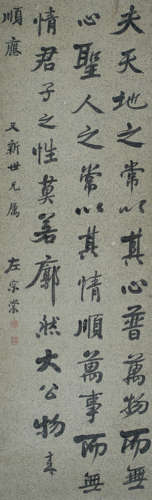 夫天地之常以其心普萬物而無
心聖人之常以其情順萬事而無
情君子之性莫若廓然大公物來
順應
又新世兄屬 左宗棠